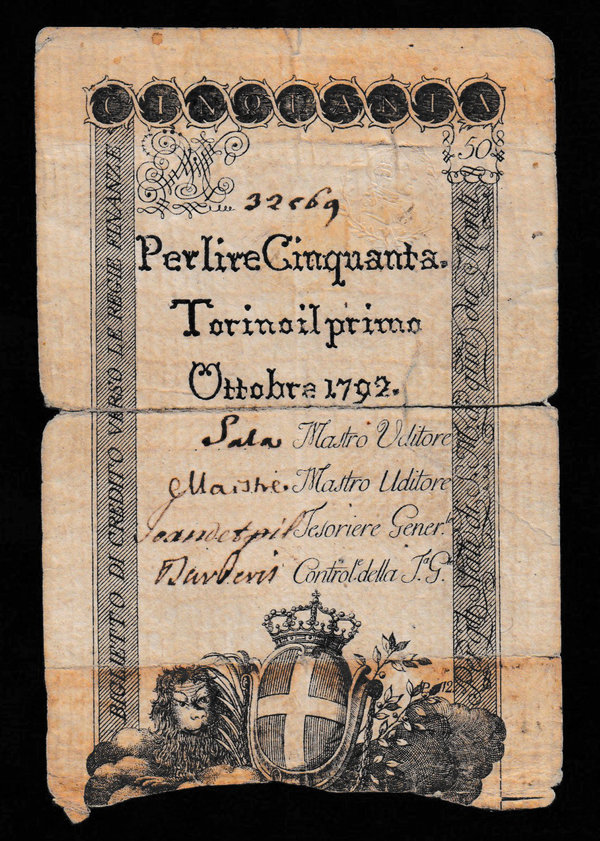 CINQUANTA
50
32569
Per lire Cinquanta.
Torino il primo
Ottobre 1792.
Sala Mastro Uditore
Mastro Uditore
Tesoriere Gener.le
Barberis Control.e della T.a G.le
BIGLIETTO DI CREDITO VERSO LE REGIE FINANZE
Stati di S. M. di quà da Monti